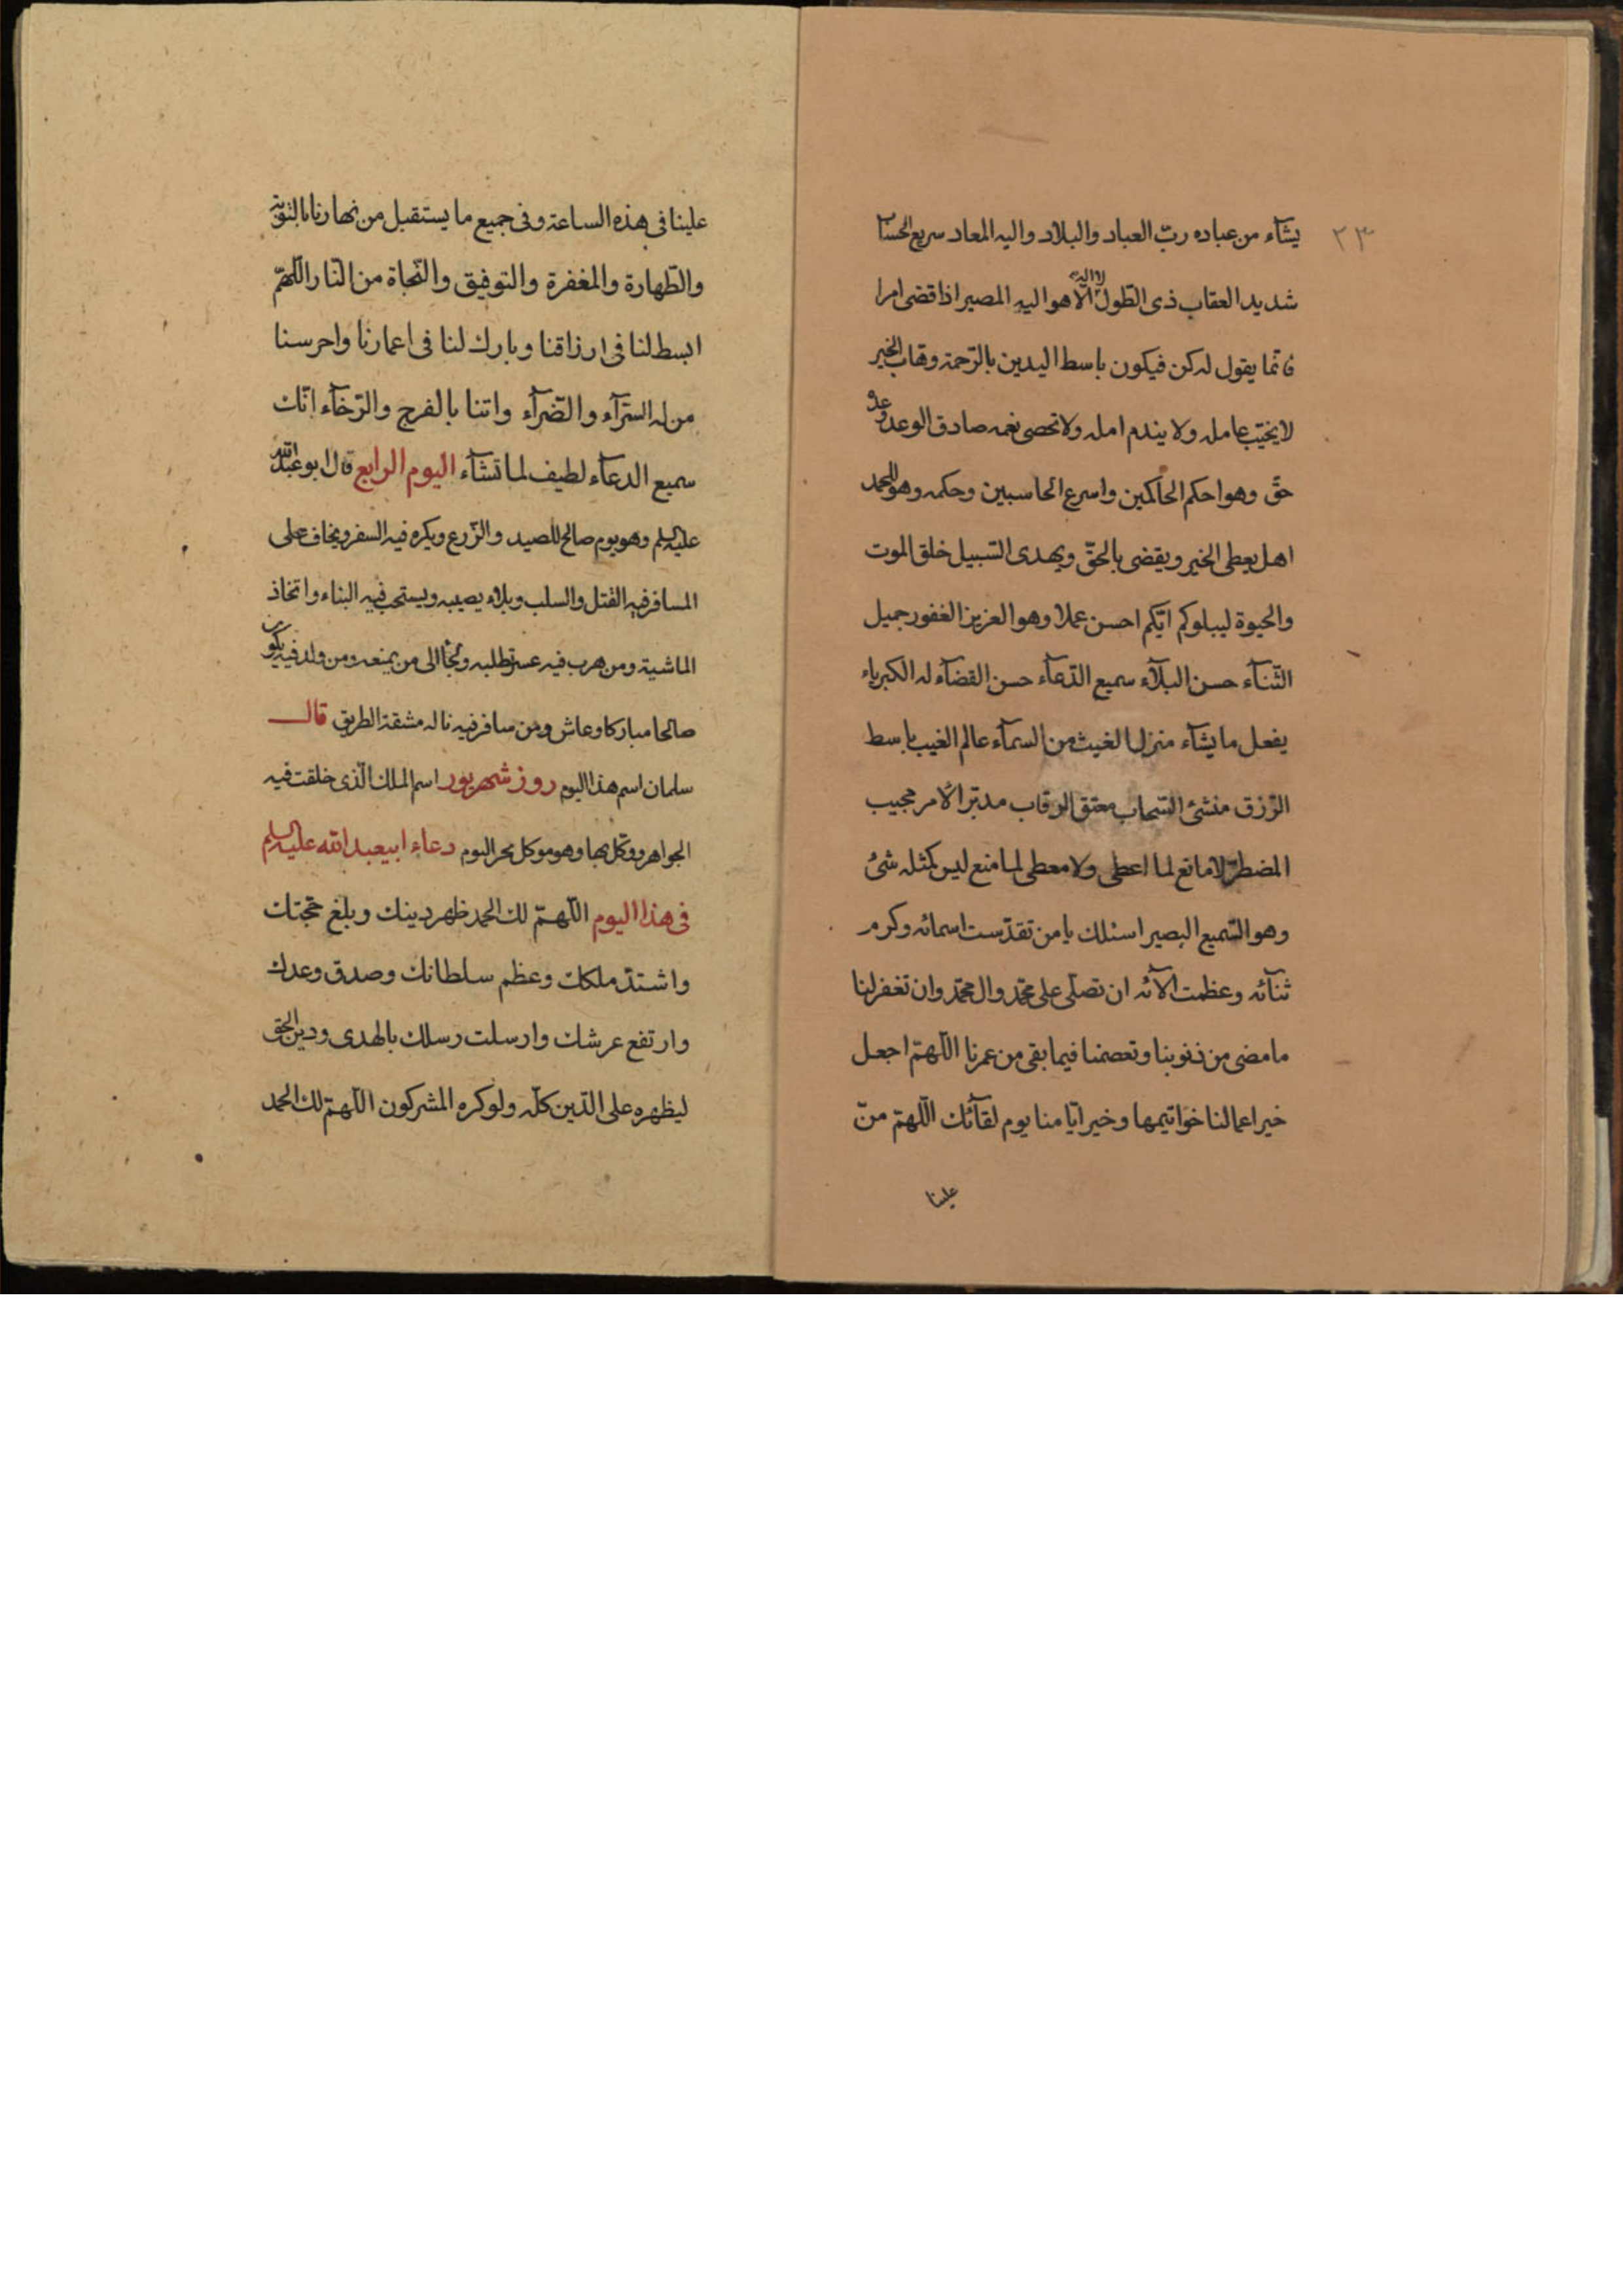 ٢٣
يشآء من عباده ربّ العباد والبلاد واليه المعاد سريع الحساب
شديد العقاب ذى الطّول لا اله الّا هو اليه المصير اذا قضى امرا
فانّما يقول له كن فيكون باسط اليدين بالرّحمة وهّاب الخير
لا يخيّب عامله ولا يندم امله ولا تحصى نعمه صادق الوعد وعده
حقّ وهو احكم الحاكمين واسرع الحاسبين وحكمه وهو للحمد
اهل يعطى الخير ويقضى بالحقّ ويهدى السّبيل خلق الموت
والحيوة ليبلوكم ايّكم احسن عملا وهو العزيز الغفور جميل
الثّنآء حسن البلآء سميع الدّعآء حسن القضآء له الكبرياء
يفعل ما يشآء منزل الغيث من السمآء عالم الغيب باسط
الرّزق منشئ السّحاب معتق الرقاب مدبّر الامر مجيب
المضطرّ لا مانع لما اعطى ولا معطى لما منع ليس كمثله شئ
وهو السّميع البصير اسئلك يا من تقدّست اسمائه وكرم
ثنآئه وعظمت الآئه ان تصلّى على محمّد وال محمّد وان تغفر لنا
ما مضى من ذنوبنا وتعصمنا فيما بقى من عمرنا اللّهمّ اجعل
خير اعمالنا خواتيمها وخير ايّامنا يوم لقآئك اللّهمّ منّ
علينا
علينا فى هذه الساعة وفى جميع ما يستقبل من نهارنا بالتوبة
والطّهارة والمغفرة والتوفيق والنّجاة من النّار اللّهمّ
ابسط لنا فى ارزاقنا وبارك لنا فى اعمارنا واحرسنا
من السّرآء والضّرآء واتنا بالفرج والرّخآء انّك
سميع الدعآء لطيف لما تشآء اليوم الرابع قال ابو عبد الله
عليه السلم وهو يوم صالح للصيد والزّرع ويكره فيه السفر ويخاف على
المسافر فيه القتل والسلب وبلاء يصيبه ويستحب فيه البناء واتخاذ
الماشية ومن هرب فيه عسر تطلبه ولجأ الى من يمنعه ومن ولد فيه يكون
صالحا مباركا وعاش ومن سافر فيه ناله مشقة الطريق قال
سلمان اسم هذا اليوم روز شهريور اسم الملك الّذى خلقت فيه
الجواهر ووكّل بها وهو موكل بحر اليوم دعاء ابيعبد الله عليه السلم
فى هذا اليوم اللّهمّ لك الحمد ظهر دينك وبلغ حجّتك
واشتدّ ملكك وعظم سلطانك وصدق وعدك
وارتفع عرشك وارسلت رسلك بالهدى ودين الحق
ليظهره على الدّين كلّه ولو كره المشركون اللّهمّ لك الحمد